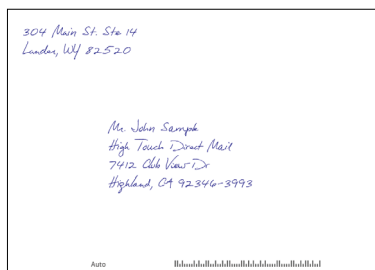 304 Main St. Ste 14
Lander, WY 82520
Mr. John Sample
High Touch Direct Mail
7412 Club View Dr
Highland, CA 92346-3993
Auto